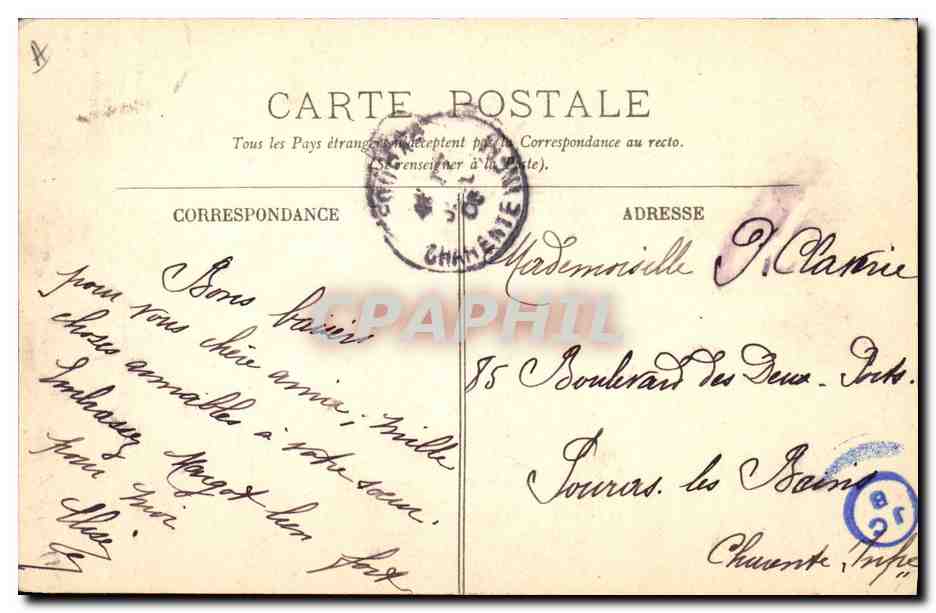 CARTE POSTALE
Tous les Pays étrangers n'acceptent pas la Correspondance au recto.
(Se renseigner à la Poste).
CORRESPONDANCE
ADRESSE
CHARENTE INFRE
Bons baisers
pour vous chère amie, mille
choses aimables à votre sœur.
Embrassez Margot bien
pour moi fort
Mademoiselle P.
85 Boulevard des Deux-Ports.
Fouras. les Bains
Charente, Infre
CPAPHIL